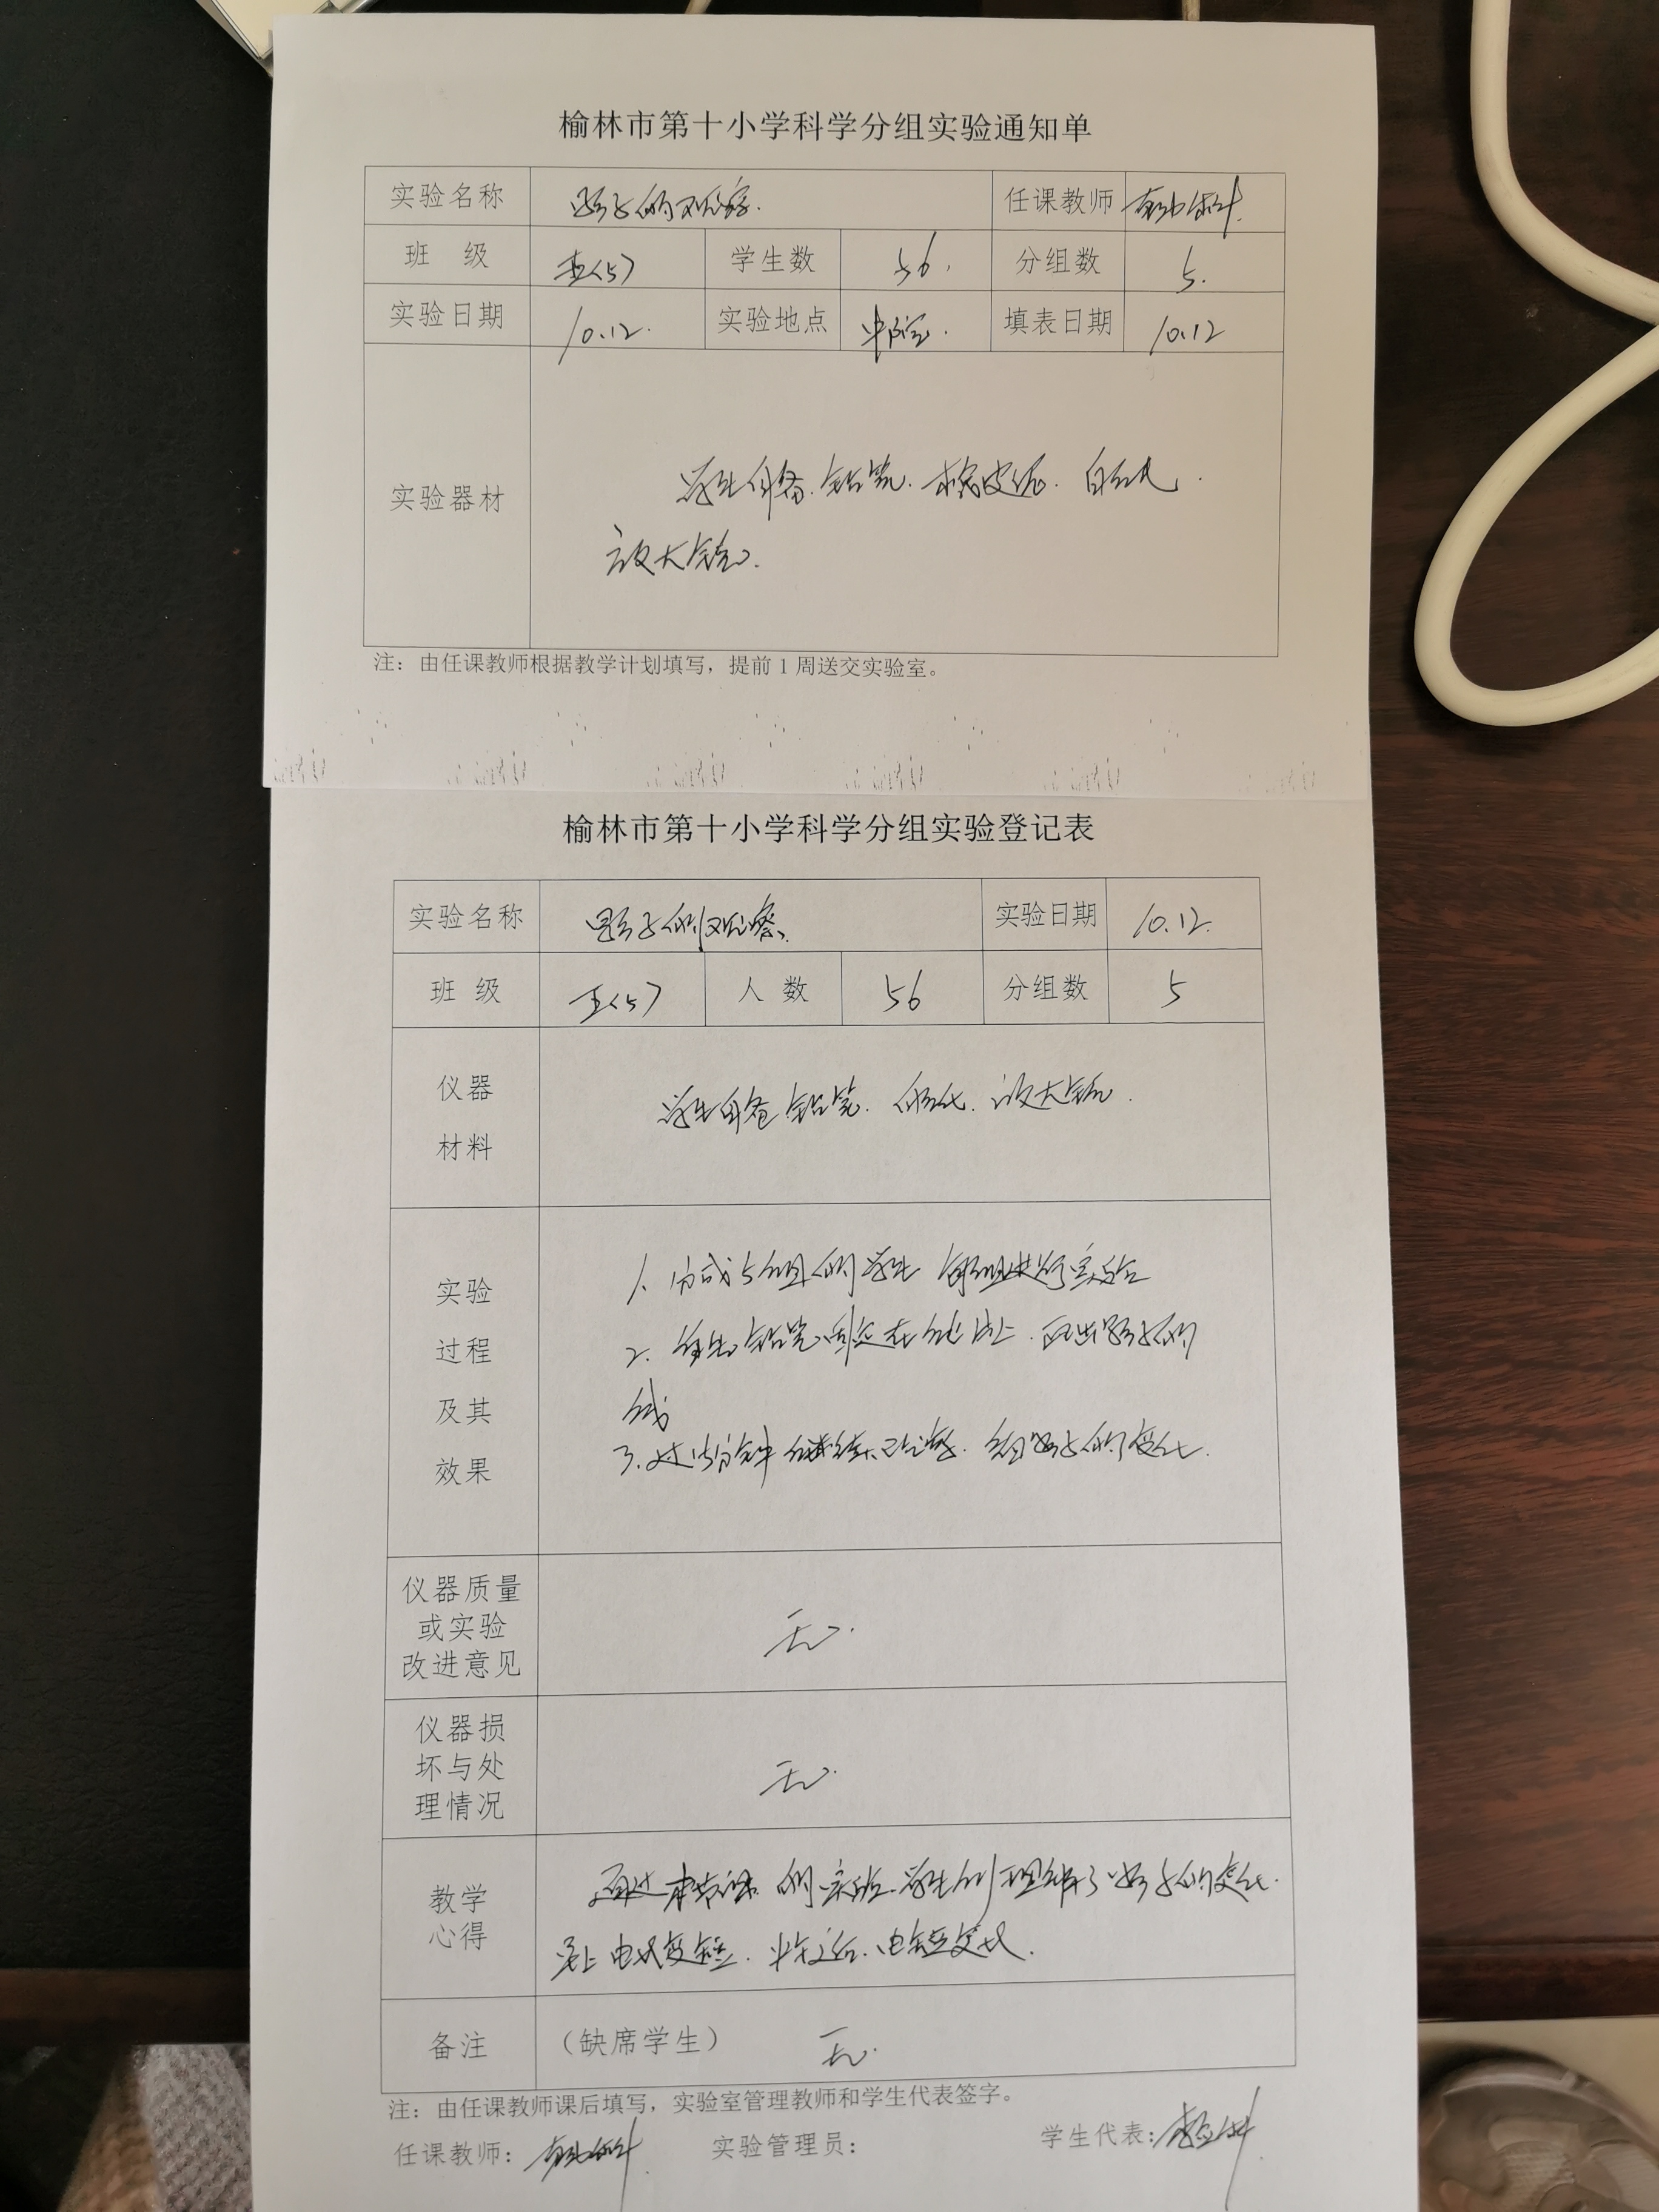 榆林市第十小学科学分组实验通知单
实验名称 影子的观察. 任课教师
班 级 五(5) 学生数 56. 分组数 5.
实验日期 10.12. 实验地点 中院. 填表日期 10.12
实验器材 学生自备.铅笔.橡皮泥.白纸.
放大镜.
注：由任课教师根据教学计划填写，提前1周送交实验室。
榆林市第十小学科学分组实验登记表
实验名称 影子的观察. 实验日期 10.12.
班 级 五(5) 人 数 56 分组数 5
仪器
材料
学生自备 铅笔. 放大镜.
实验
过程
及其
效果
1. 分成5组的学生 每组进行实验
2. 铅笔固定在纸片上.画出影子的
线
3.过15分钟 继续观察. 影子的变化.
仪器质量
或实验
改进意见
无.
仪器损
坏与处
理情况
无.
教学
心得
通过本节课的实验.学生们理解了影子的变化.
早上由长变短. 由短变长.
备注 （缺席学生） 无.
注：由任课教师课后填写，实验室管理教师和学生代表签字。
任课教师： 实验管理员： 学生代表：